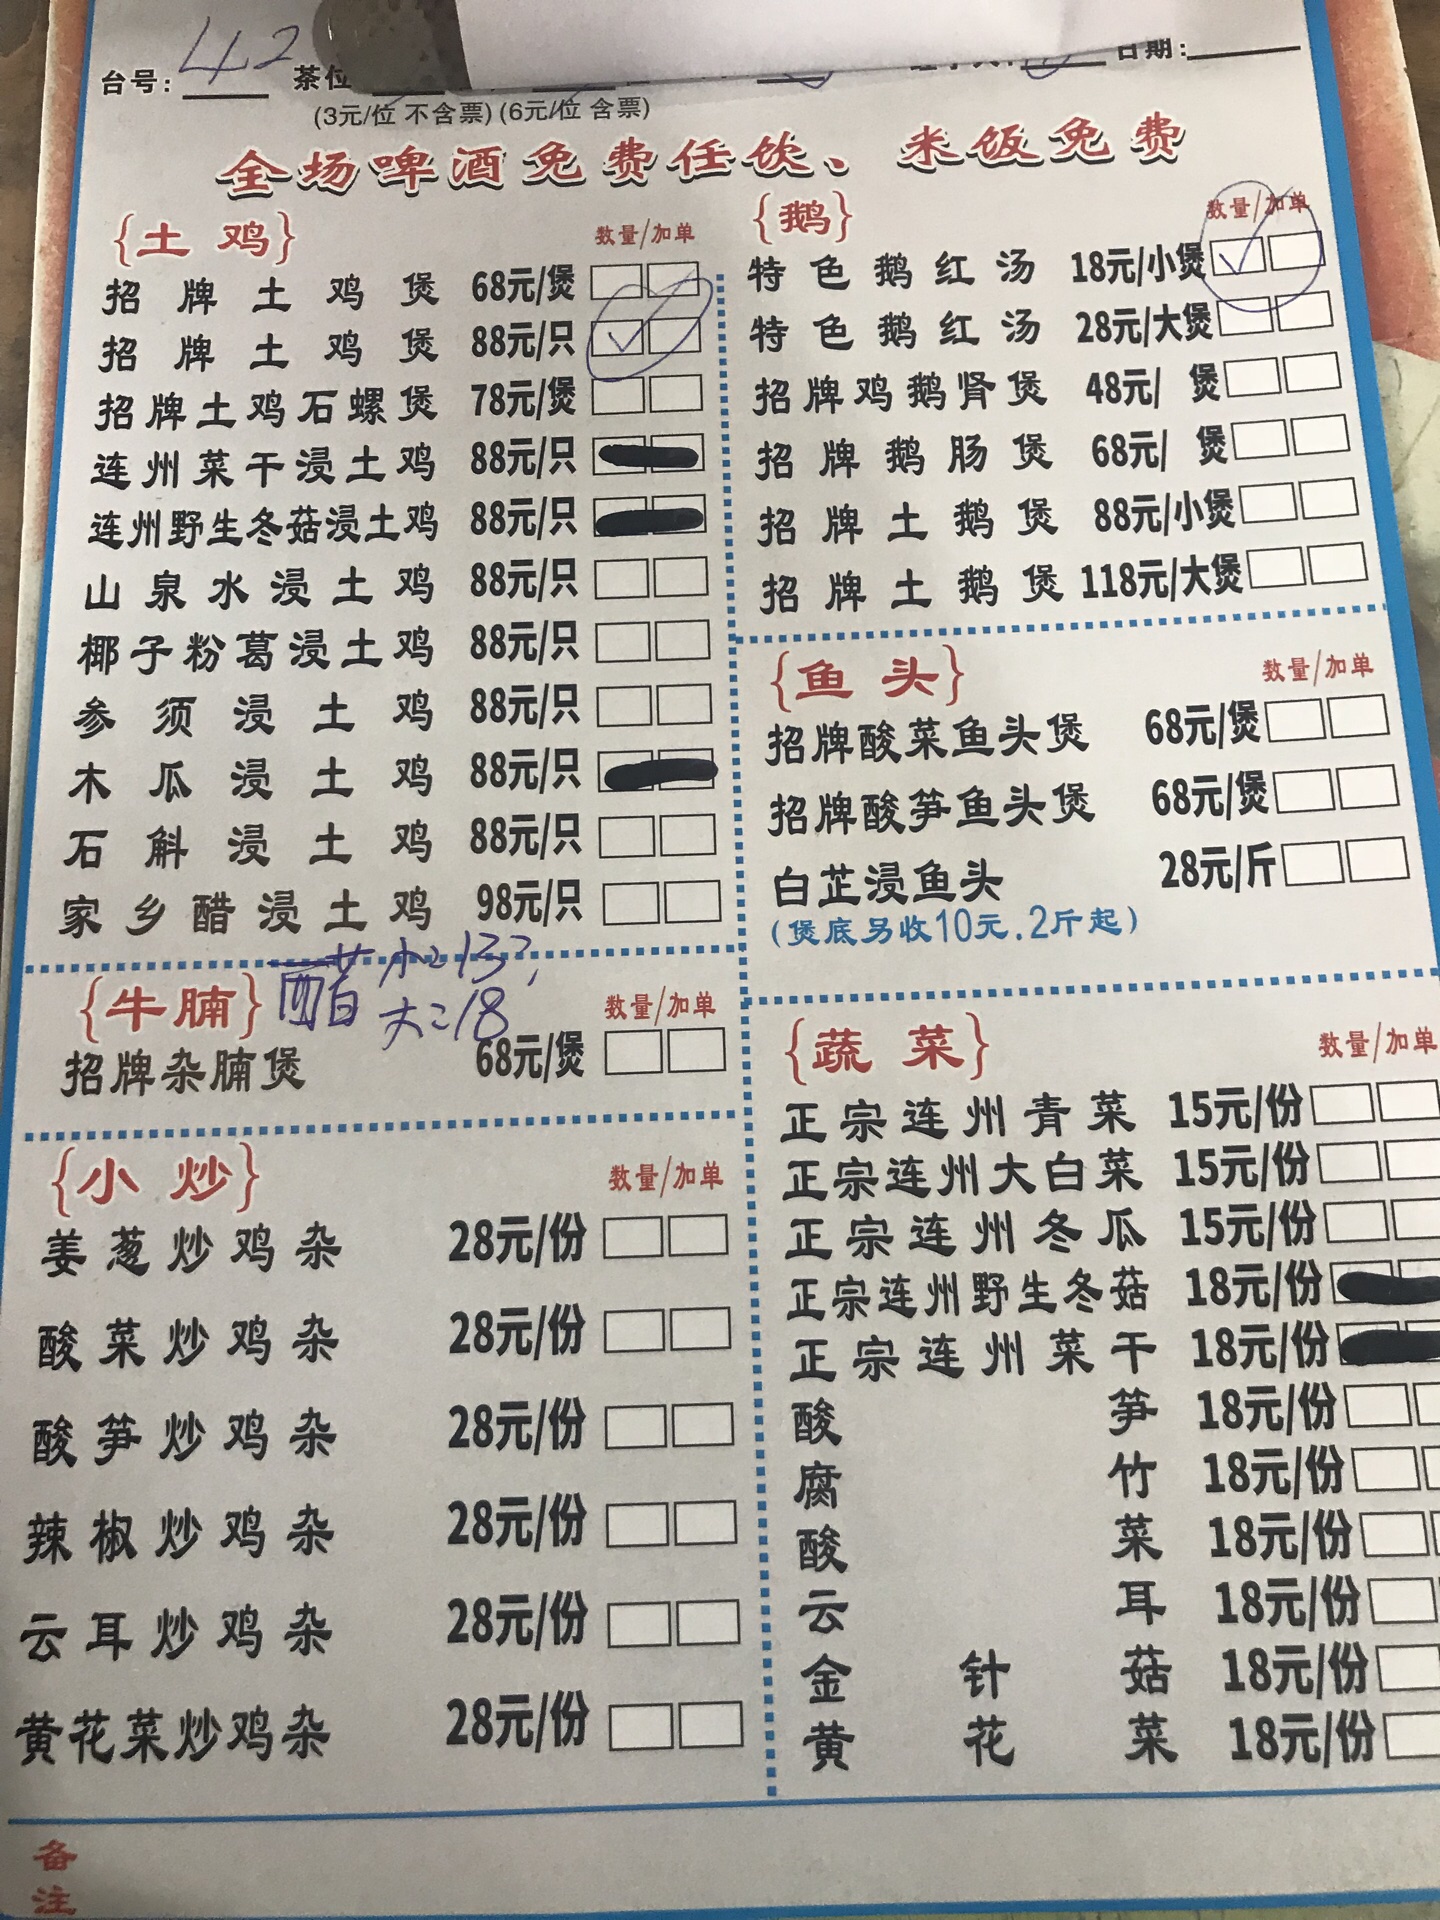 台号: 42 茶位
日期:
(3元/位 不含票) (6元/位 含票)
全场啤酒免费任饮、米饭免费
{土鸡} 数量/加单
招牌土鸡煲 68元/煲
招牌土鸡煲 88元/只
招牌土鸡石螺煲 78元/煲
连州菜干浸土鸡 88元/只
连州野生冬菇浸土鸡 88元/只
山泉水浸土鸡 88元/只
椰子粉葛浸土鸡 88元/只
参须浸土鸡 88元/只
木瓜浸土鸡 88元/只
石斛浸土鸡 88元/只
家乡醋浸土鸡 98元/只
{牛腩} 数量/加单
醋
大=18
招牌杂腩煲 68元/煲
{小炒} 数量/加单
姜葱炒鸡杂 28元/份
酸菜炒鸡杂 28元/份
酸笋炒鸡杂 28元/份
辣椒炒鸡杂 28元/份
云耳炒鸡杂 28元/份
黄花菜炒鸡杂 28元/份
{鹅} 数量/加单
特色鹅红汤 18元/小煲
特色鹅红汤 28元/大煲
招牌鸡鹅肾煲 48元/煲
招牌鹅肠煲 68元/煲
招牌土鹅煲 88元/小煲
招牌土鹅煲 118元/大煲
{鱼头} 数量/加单
招牌酸菜鱼头煲 68元/煲
招牌酸笋鱼头煲 68元/煲
白芷浸鱼头 28元/斤
(煲底另收10元.2斤起)
{蔬菜} 数量/加单
正宗连州青菜 15元/份
正宗连州大白菜 15元/份
正宗连州冬瓜 15元/份
正宗连州野生冬菇 18元/份
正宗连州菜干 18元/份
酸笋 18元/份
腐竹 18元/份
酸菜 18元/份
云耳 18元/份
金针菇 18元/份
黄花菜 18元/份
备注